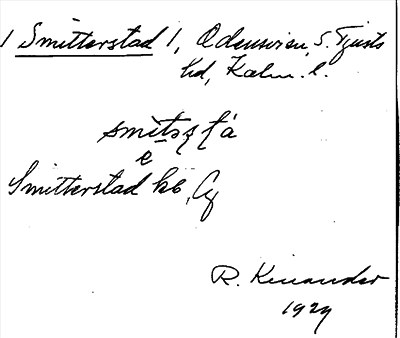 1 Smitterstad 1, Odensvien, S. Tjusts
hd, Kalm. l.
smitsta
e
Smitterstad kb,
R. Kinander
1929